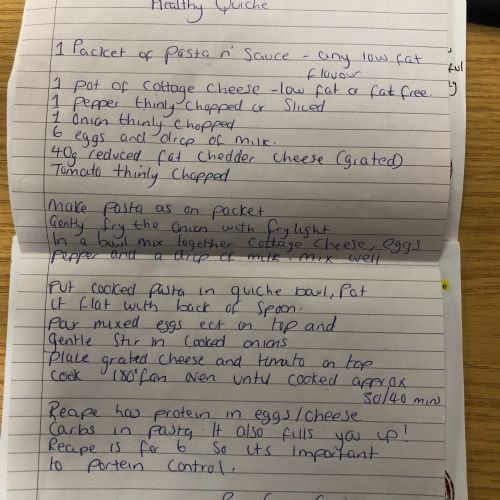 Healthy Quiche
1 Packet of Pasta n' Sauce - any low fat
flavour
1 pot of cottage cheese - low fat or fat free.
1 Pepper thinly chopped or sliced
1 Onion thinly chopped
6 eggs and drop of milk.
40g reduced fat chedder cheese (grated)
Tomato thinly chopped
Make pasta as on packet
Gently fry the onion with frylight
In a bowl mix together cottage cheese, eggs
pepper and a drop of milk. mix well
Put cooked pasta in quiche bowl, Pat
it flat with back of spoon.
Poar mixed eggs ect on top and
gentle stir in cooked onions
Place grated cheese and tomato on top
Cook 180° fan oven until cooked approx
30/40 mins
Reciape has protein in eggs/cheese
Carbs in pasta. It also fills you up!
Reciape is for 6 so its important
to portein control.